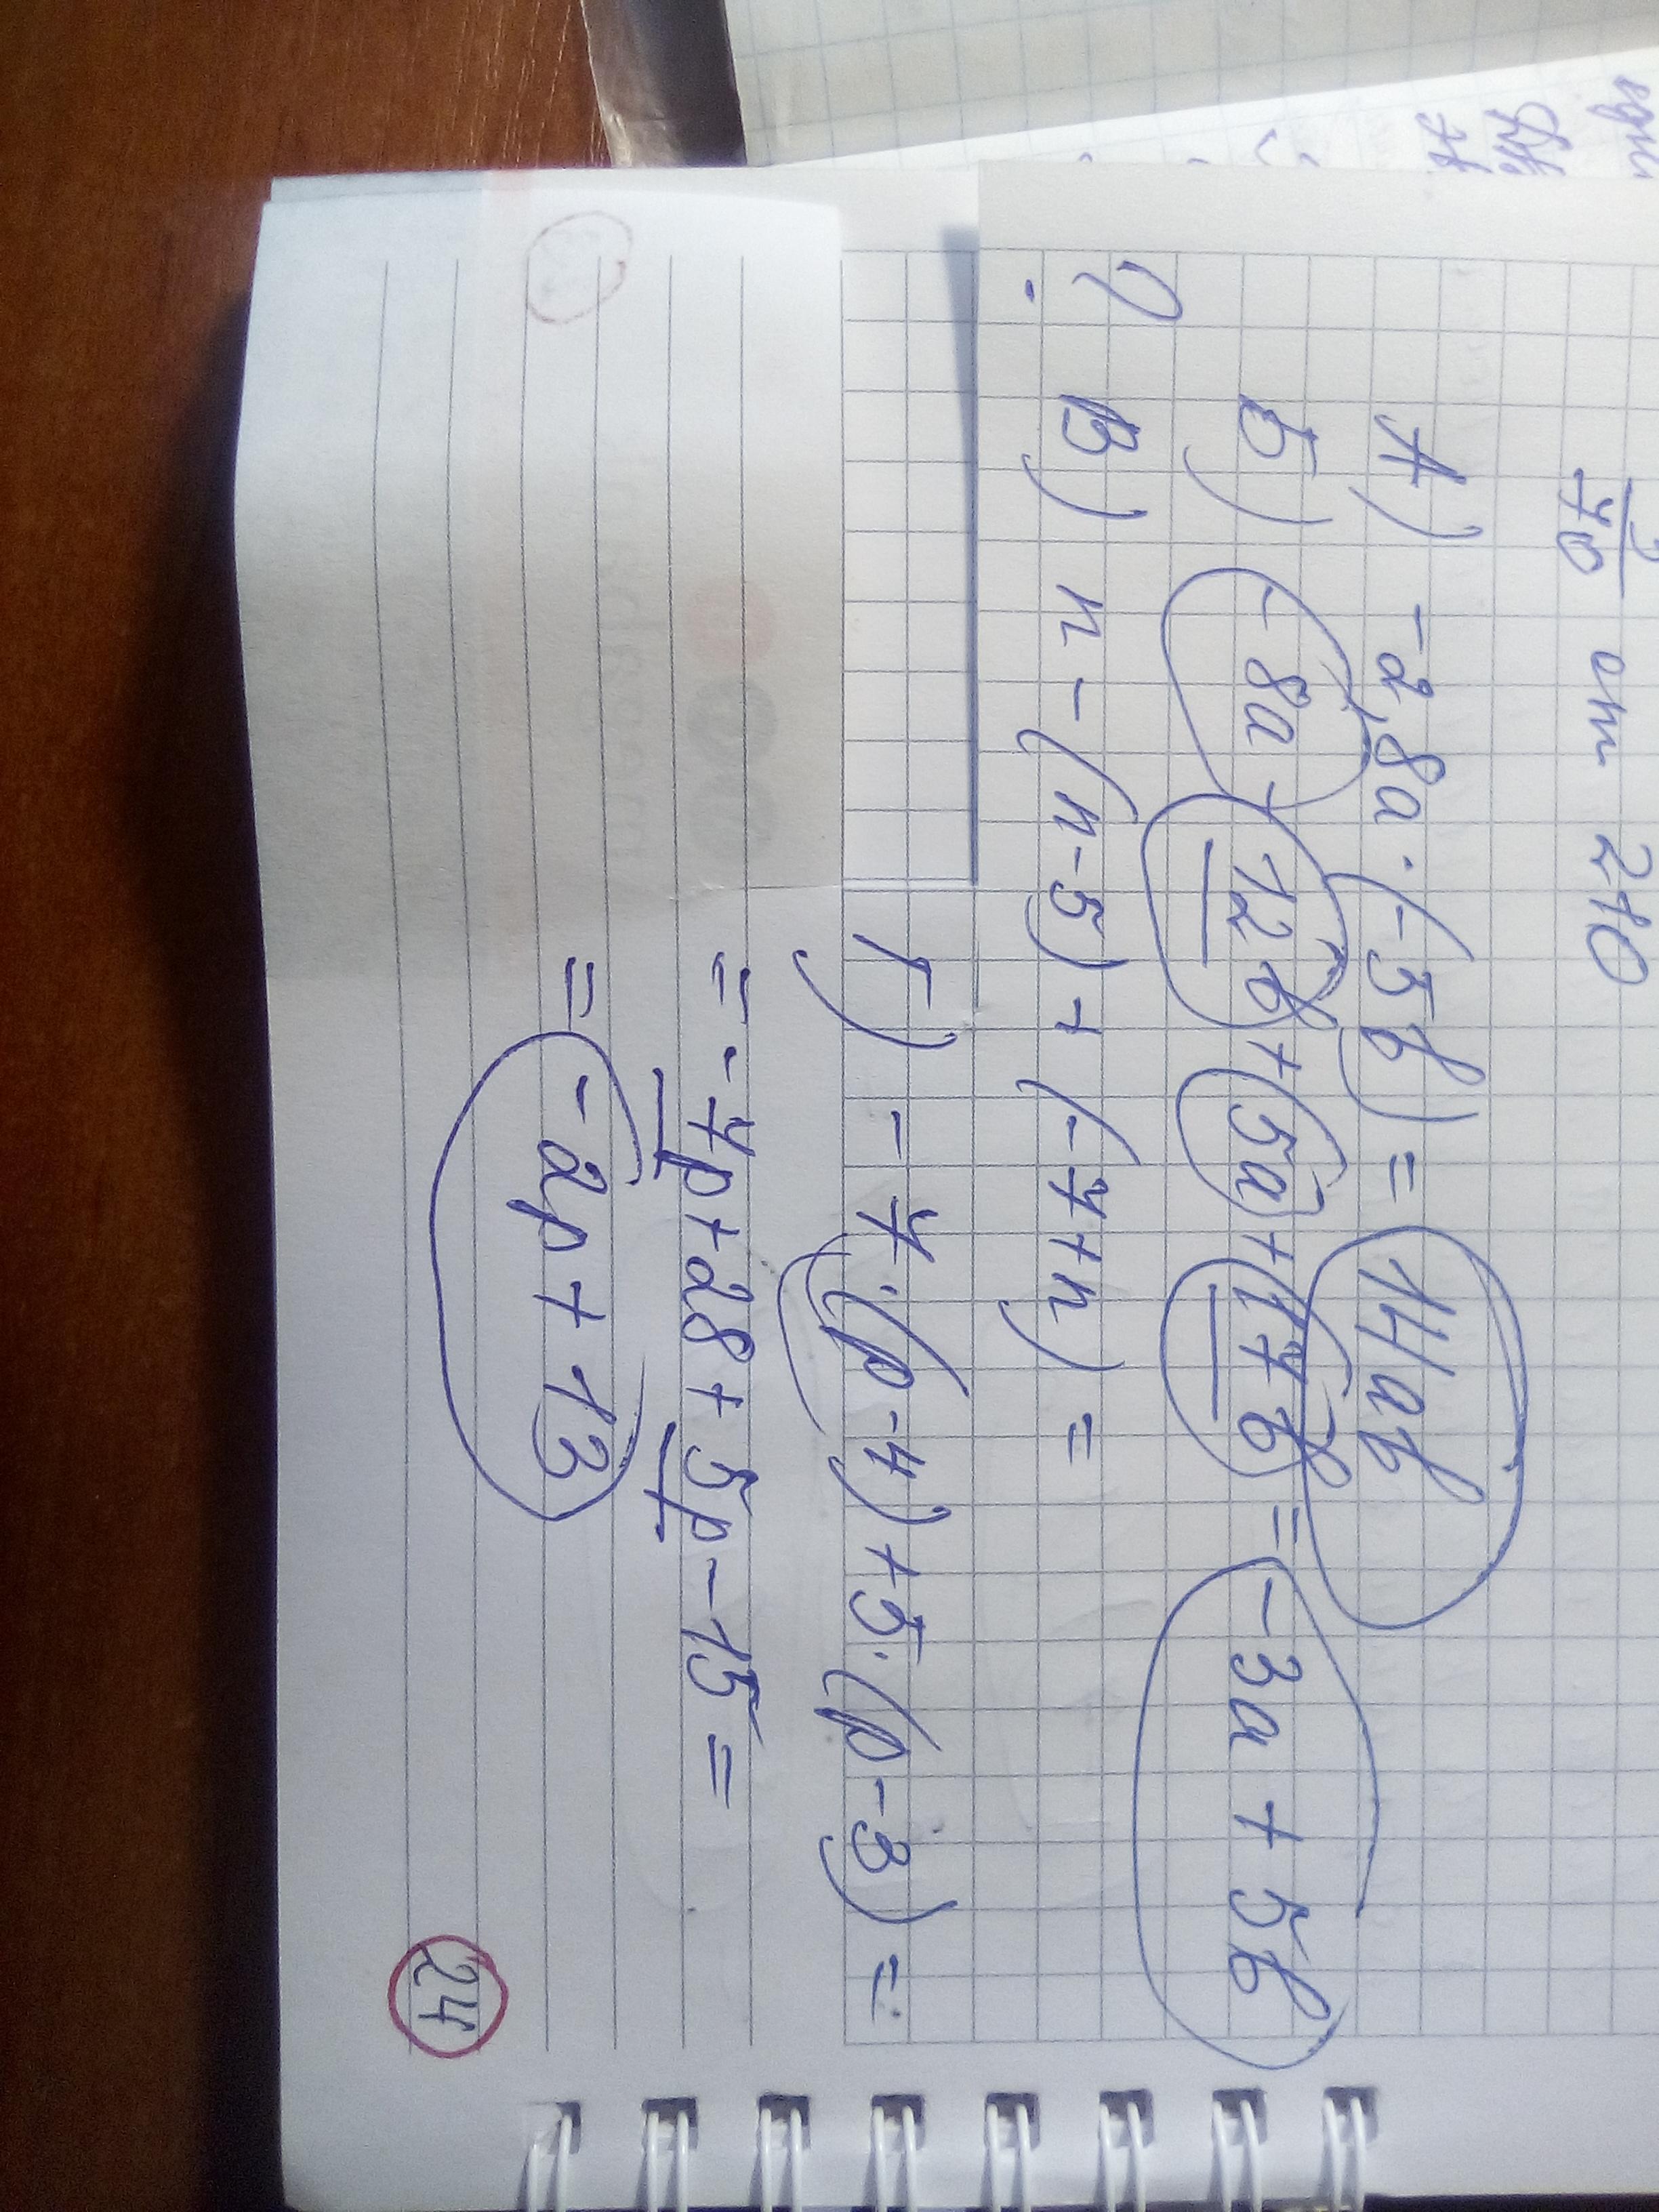 3/70 от 210
А) -2,8а·(-5b) = 14ab
Б) -8а - 12b + 5а + 17b = -3а + 5b
? В) n - (n-5) + (-7+n) =
Г) - 7·(р-4)+5·(р-3) =
= -7р+28+5р-15 =
= -2р+13
24